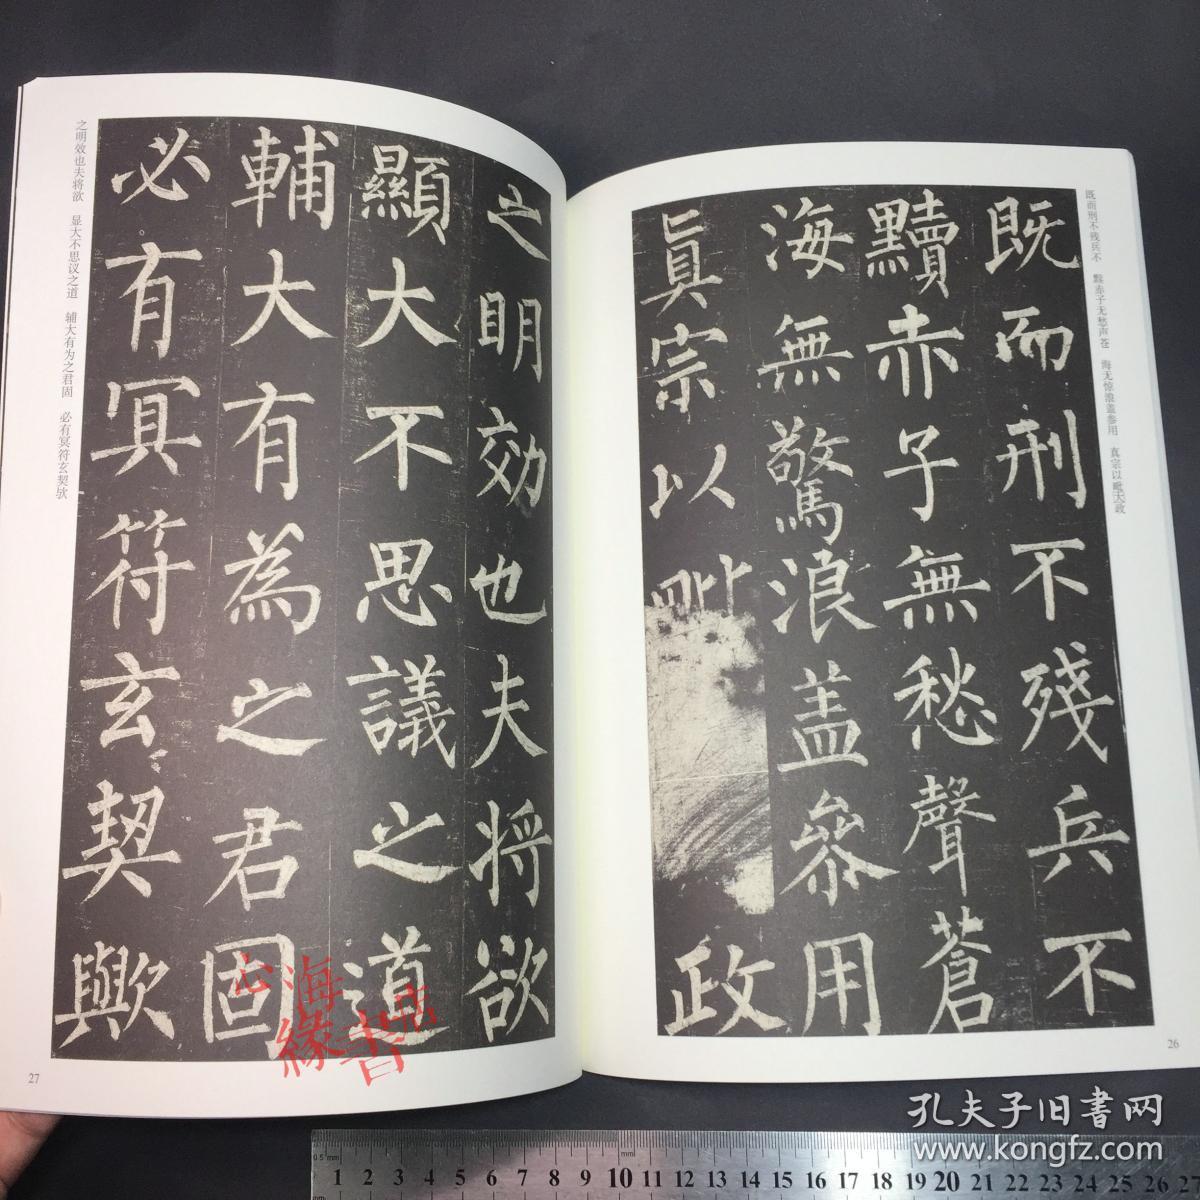 既而刑不殘兵不
黷赤子無愁聲蒼
海無驚浪盖叅用
真宗以毗
政
既而刑不残兵不 黩赤子无愁声苍 海无惊浪盖参用 真宗以毗大政
26
之明効也夫将欲
顯大不思議之道
輔大有為之君固
必有冥符玄契歟
之明效也夫将欲 显大不思议之道 辅大有为之君固 必有冥符玄契欤
27
心海
緣書店
孔夫子旧书网
www.kongfz.com
0.5mm
mm
1 2 3 4 5 6 7 8 9 10 11 12 13 14 15 16 17 18 19 20 21 22 23 24 25 26 27